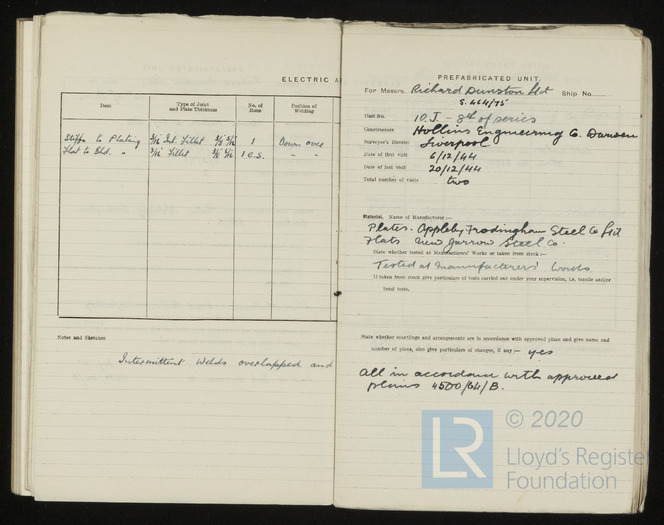 ELECTRIC A
Item
Type of Joint
and Plate Thickness
No. of
Runs
Position of
Welding
Stiffs to Plating 3/16 Int. Fillet 1 Down over
Flat to Bhd. " 3/16 Fillet 1 E.S. " "
Notes and Sketches
Intermittent Welds overlapped and
PREFABRICATED UNIT.
For Messrs. Richard Dunston Ltd Ship No.
S.464/75
Unit No. 10.J - 8th of series
Constructors Hollins Engineering Co. Darwen
Surveyor's District Liverpool
Date of first visit 6/12/44
Date of last visit 20/12/44
Total number of visits two
Material. Name of Manufacturer :—
Plates. Appleby Frodingham Steel Co Ltd
Flats New Jarrow Steel Co.
State whether tested at Manufacturers' Works or taken from stock :—
Tested at Manufacturers' Works
If taken from stock give particulars of tests carried out under your supervision, i.e. tensile and/or
bend tests.
State whether scantlings and arrangements are in accordance with approved plans and give name and
number of plans, also give particulars of changes, if any :— yes
All in accordance with approved
plans 4500/64/B.
LR
© 2020
Lloyd's Register
Foundation